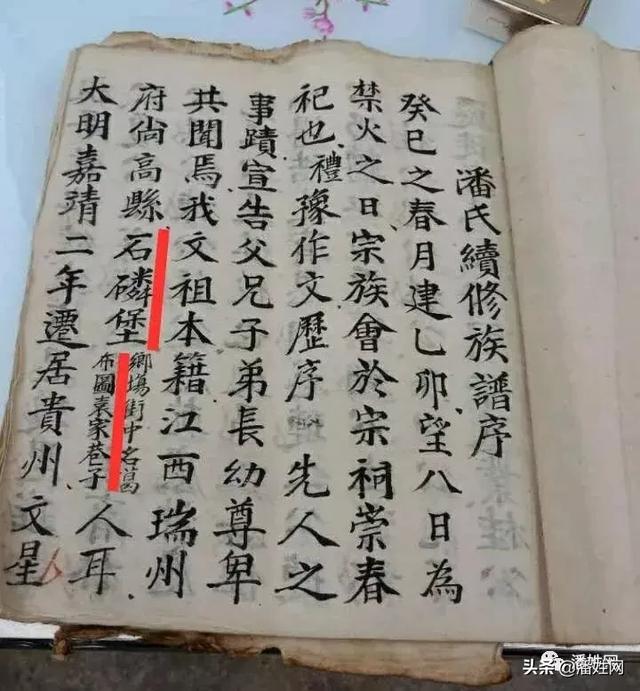 潘氏續修族譜序
癸巳之春月建乙卯望八日為
禁火之日宗族會於宗祠崇春
祀也禮豫作文歷序先人之
事蹟宣告父兄子弟長幼尊卑
共聞焉我文祖本籍江西瑞州
府尚高縣石磷堡
鄉場街中名
布圖袁家巷子
人耳
大明嘉靖二年遷居貴州文星
潘姓网
头条@潘姓网